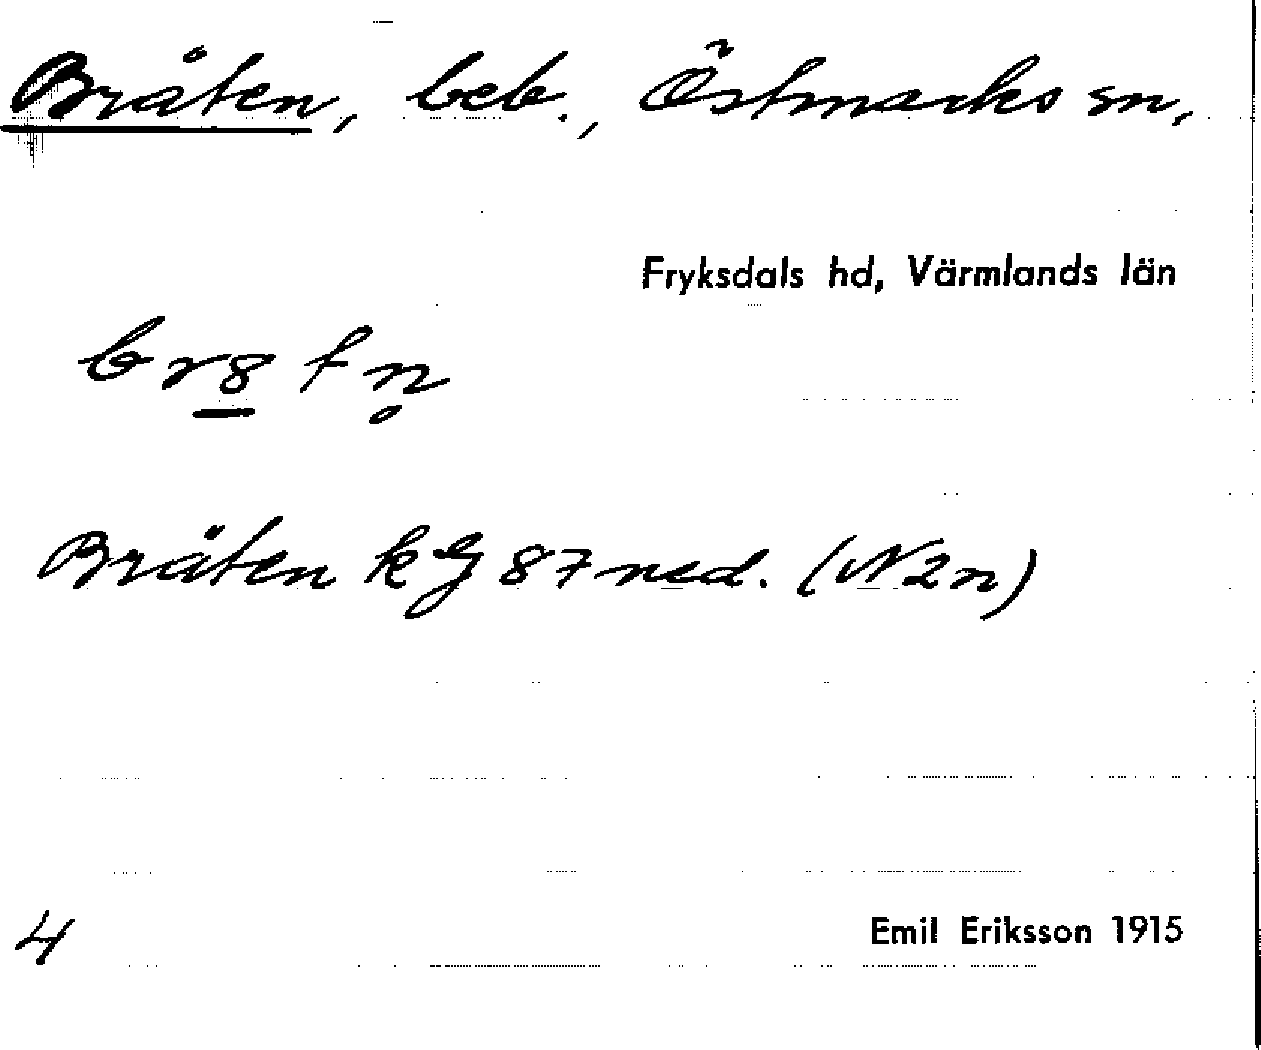 Bråten, beb., Östmarks sn,
Fryksdals hd, Värmlands län
br8tn̥
Bråten k G 87 ned. (N2n)
4
Emil Eriksson 1915